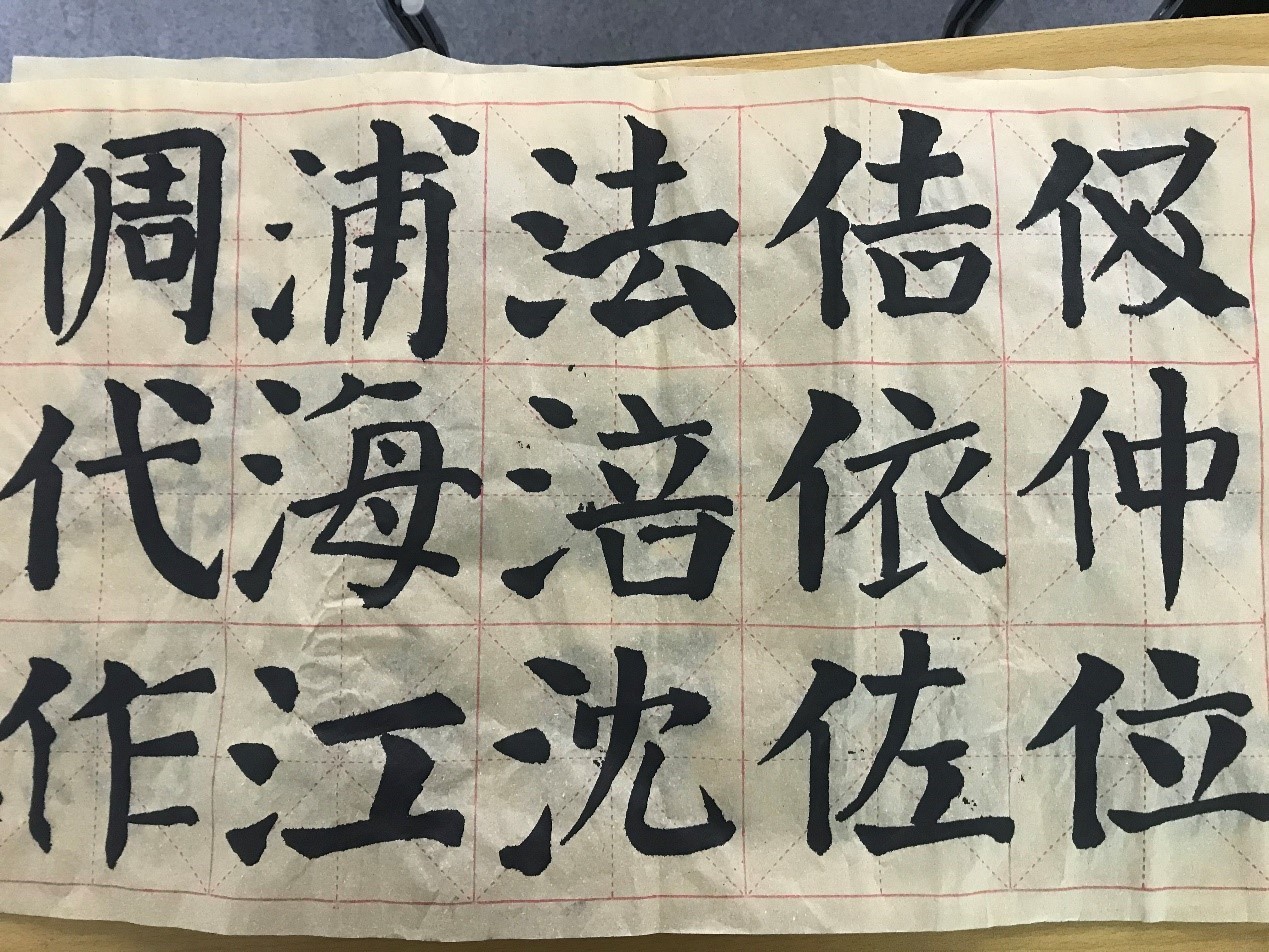 伋仲位
佶依佐
法涪沈
浦海江
倜代作